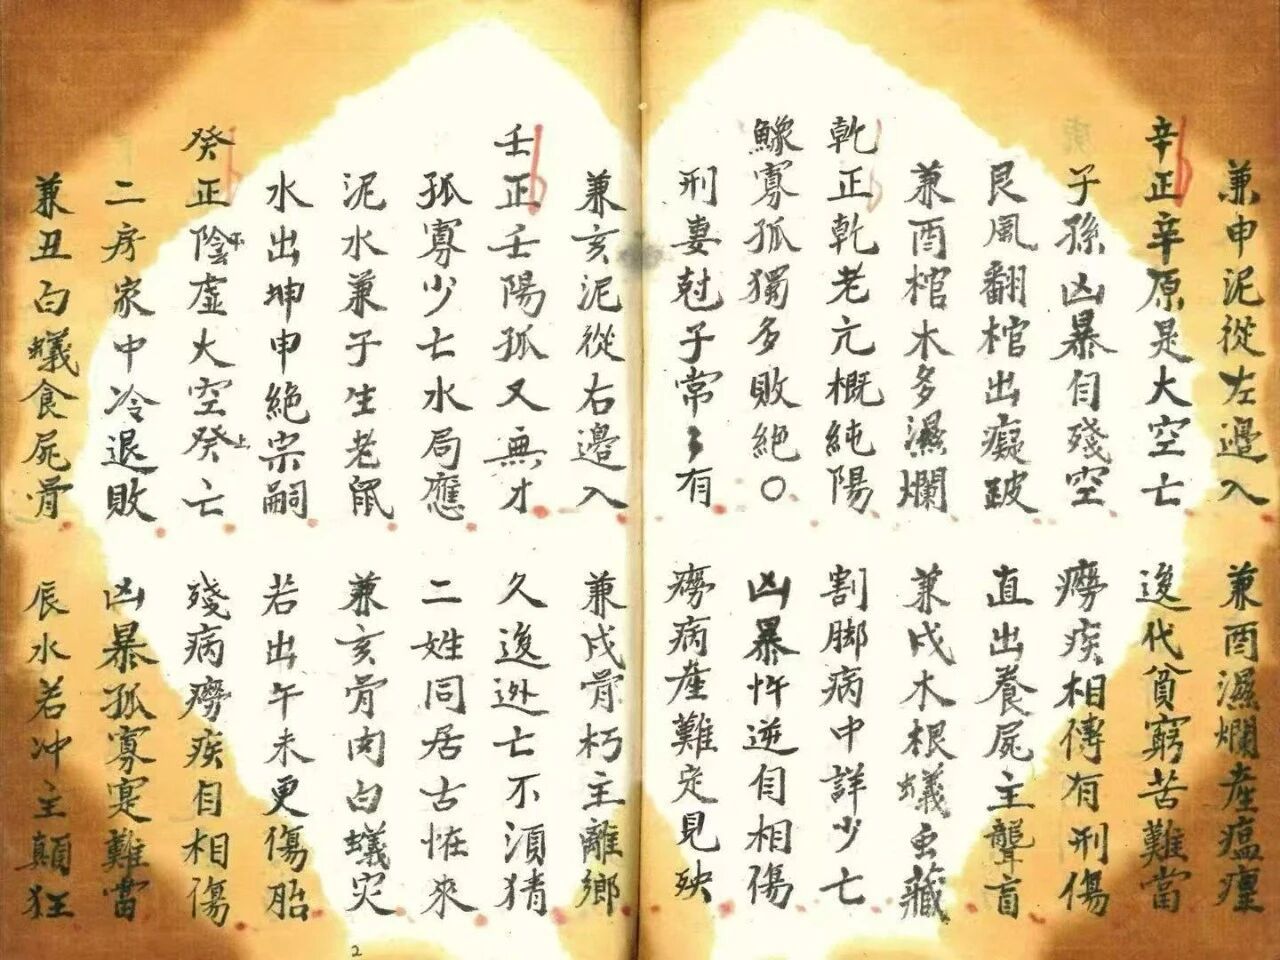 兼申泥從左邊入　兼酉濕爛產瘟㾮
辛正辛原是大空亡　後代貧窮苦難當
子孫凶暴自殘空　癆疾相傳有刑傷
艮風翻棺出癡跛　直出養屍主聾盲
兼酉棺木多濕爛　兼戌木根蟻虫藏
乾正乾老亢概純陽　割脚病中詳少亡
鰥寡孤獨多敗絕〇　凶暴忤逆自相傷
刑妻尅子常〻有　癆病產難定見殃
兼亥泥從右邊入　兼戌骨朽主離鄉
壬正壬陽孤又無才　久後逃亡不須猜
孤寡少亡水局應　二姓同居古怪來
泥水兼子生老鼠　兼亥骨肉白蟻灾
水出坤申絕宗嗣　若出午未更傷胎
癸正陰不虛大空癸上亡　殘病癆疾自相傷
二房家中冷退敗　凶暴孤寡寔難當
兼丑白蟻食屍骨　辰水若冲主顛狂
2